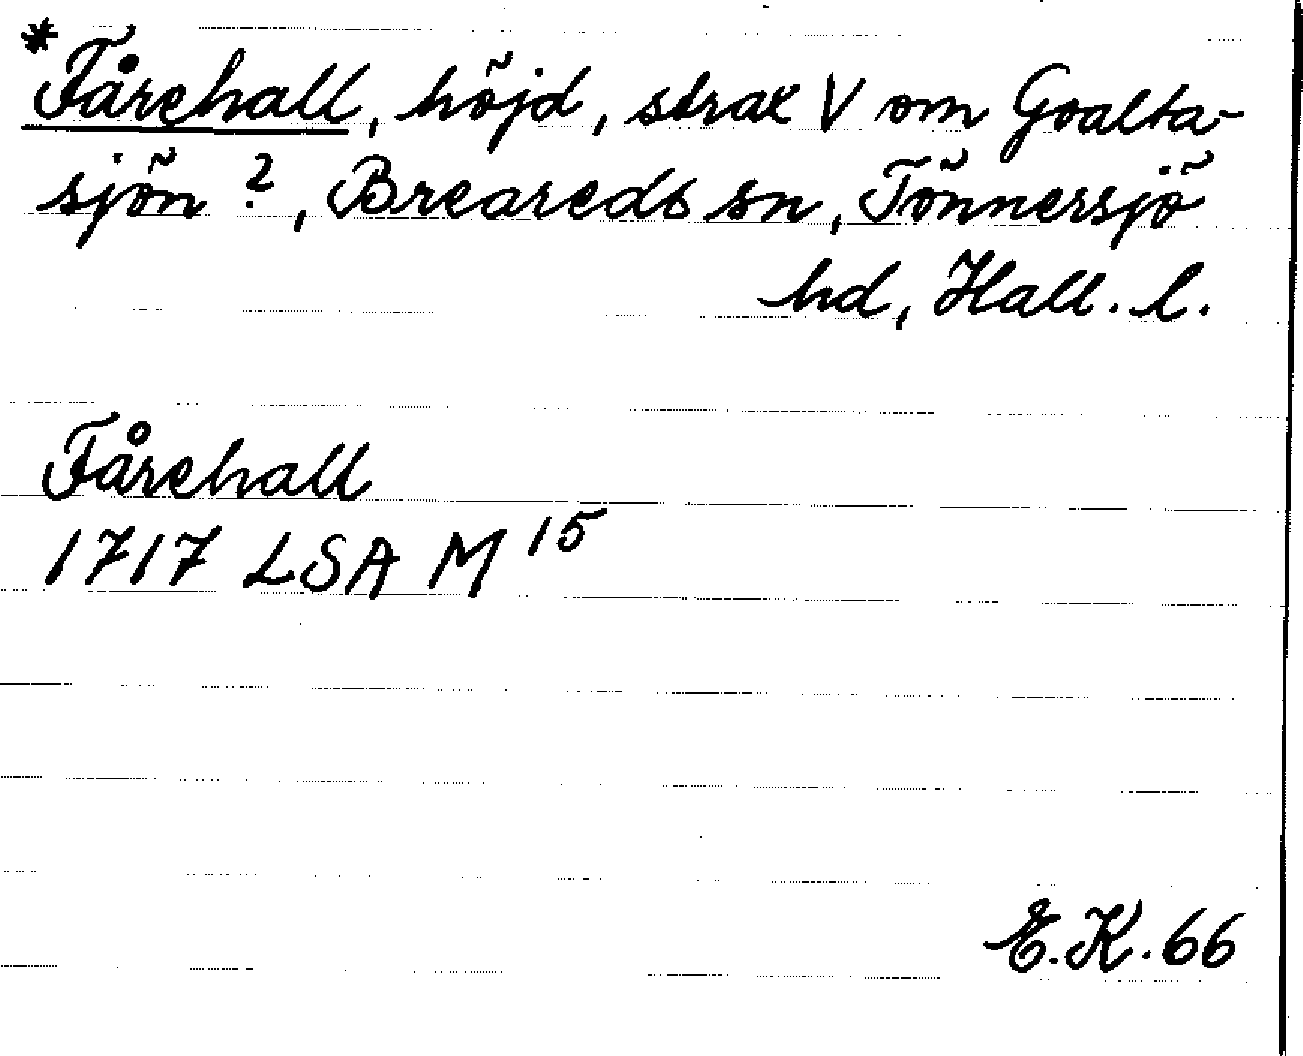 *Fårehall, höjd, strax V om Goalta-
sjön ?, Breareds sn, Tönnersjö
hd, Hall. l.
Fårehall
1717 LSA M 15
E.K. 66